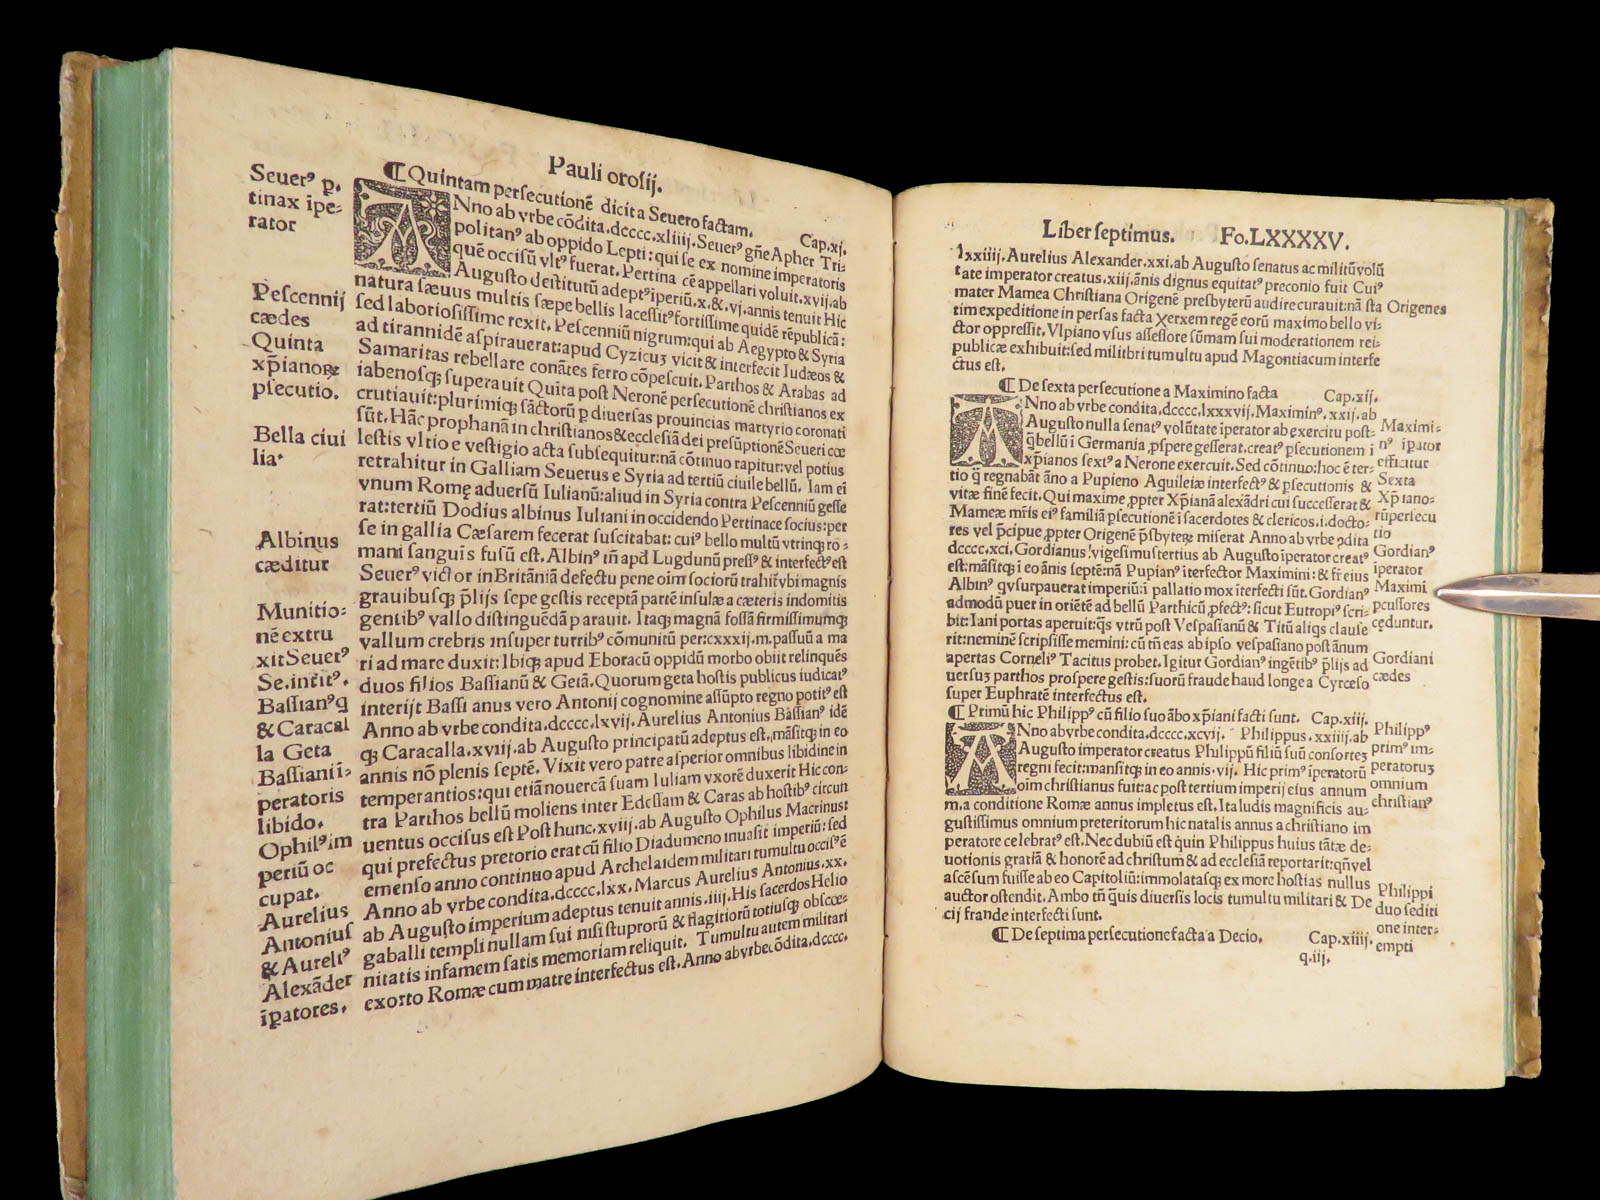 Pauli orosij.
Seuerꝰ p̱.
tinax īpe⸗
rator
Pescennij
cædes
Quinta
xp̄ianoꝝ
ꝑsecutio.
Bella ciui
lia.
Albinus
cæditur
Munitio⸗
nē extru
xit Seuerꝰ
Se. intit̕.
Bassianꝰ q
& Caracal
la Geta
Bassiani ī⸗
peratoris
libido.
Ophilꝰ im
periū oc
cupat.
Aurelius
Antonius
& Aureliꝰ
Alexāder
īꝑatores.
¶ Quintam persecutionē dicit a Seuero factam. Cap. xi.
ANno ab vrbe cōdita. dcccc. xliiij. Seuerꝰ gn̄e Apher Tri⸗
politanꝰ ab oppido Lepti: qui se ex nomine imperatoris
quē occisū vltꝰ fuerat. Pertina cē appellari voluit. xvij. ab
Augusto destitutū adeptꝰ īperiū. x. &. vj. annis tenuit Hic
natura sæuus multis sæpe bellis lacessitꝰ fortissime quidē rēpublicā:
sed laboriosissime rexit. Pescenniū nigrum: qui ab Aegypto & Syria
ad tirannidē aspirauerat: apud Cyzicuꝫ vicit & interfecit Iudæos &
Samaritas rebellare conātes ferro cōpescuit. Parthos & Arabas ad
iabenosqꝫ superauit Quīta post Neronē persecutionē christianos ex
crutiauit: plurimiqꝫ sāctorū ꝑ diuersas prouincias martyrio coronati
sūt. Hāc prophanā in christianos & ecclesiā dei presūptionē Seueri cœ
lestis vltio e vestigio acta subsequitur: nā cōtinuo rapitur: vel potius
retrahitur in Galliam Seuerus e Syria ad tertiū ciuile bellū. Iam ei
vnum Romę aduersū Iulianū: aliud in Syria contra Pescenniū gesse
rat: tertiū Dodius albinus Iuliani in occidendo Pertinace socius: per
se in gallia Cæsarem fecerat suscitabat: cuiꝰ bello multū vtrinqꝫ ro⸗
mani sanguis fusū est. Albinꝰ tn̄ apd Lugdunū pressꝰ & interfectꝰ est
Seuerꝰ victor in Britāniā defectu pene oim sociorū trahit̕ vbi magnis
grauibusqꝫ p̄lijs sepe gestis receptā partē insulæ a cæteris indomitis
gentibꝰ vallo distinguēdā parauit. Itaqꝫ magnā fossā firmissimumqꝫ
vallum crebris insuper turribꝰ cōmunitū per: cxxxij. m. passuū a ma
ri ad mare duxit: Ibiqꝫ apud Eboracū oppidū morbo obiit relinquēs
duos filios Bassianū & Getā. Quorum geta hostis publicus iudicatꝰ
interijt Bassi anus vero Antonij cognomine assūpto regno potitꝰ est
Anno ab vrbe condita. dcccc. lxvij. Aurelius Antonius Bassianꝰ idē
qꝫ Caracalla. xviij. ab Augusto principatū adeptus est, māsitqꝫ in eo
annis nō plenis septē. Vixit vero patre asperior omnibus libidine in
temperantios: qui etiā nouercā suam Iuliam vxorē duxerit Hic con⸗
tra Parthos bellū moliens inter Edessam & Caras ab hostibꝰ circun
uentus occisus est Post hunc. xviij. ab Augusto Ophilus Macrinus:
qui prefectus pretorio erat cū filio Diadumeno inuasit imperiū: sed
emenso anno continuo apud Archelaidem militari tumultu occisꝰ ē
Anno ab vrbe condita. dcccc. lxx. Marcus Aurelius Antonius. xx.
ab Augusto imperium adeptus tenuit annis. iiij. His sacerdos Helio
gaballi templi nullam sui nisi stuprorū & flagitiorū totiusqꝫ obscœ⸗
nitatis infamem satis memoriam reliquit. Tumultu autem militari
exorto Romæ cum matre interfectus est. Anno ab vrbe cōdita. dcccc.
Liber septimus. Fo. LXXXXV.
lxxiiij. Aurelius Alexander. xxi. ab Augusto senatus ac militū volū
tate imperator creatus. xiij. ānis dignus equitatꝭ preconio fuit Cuiꝰ
mater Mamea Christiana Origenē presbyterū audire curauit: nā sta
tim expeditione in persas facta Xerxem regē eorū maximo bello vi⸗
ctor oppressit. Vlpiano vsus assessore sūmam sui moderationem rei⸗
publicæ exhibuit: sed militbri tumultu apud Magontiacum interfe
ctus est.
Origenes
¶ De sexta persecutione a Maximino facta Cap. xij.
ANno ab vrbe condita. dcccc. lxxxvij. Maximinꝰ. xxij. ab
Augusto nulla senatꝰ volūtate īperator ab exercitu post⸗
q̄ bellū i Germania ꝓspere gesserat. creatꝰ ꝑsecutionem i
xp̄ianos sextꝰ a Nerone exercuit. Sed cōtinuo: hoc ē ter⸗
tio q̄ regnabāt āno a Pupieno Aquileiæ interfectꝰ & ꝑsecutionis &
vitæ finē fecit. Qui maxime ꝓpter Xp̄ianā alexādri cui successerat &
Mameæ mr̄is eiꝰ familiā ꝑsecutionē i sacerdotes & clericos. i. docto⸗
res vel p̄cipue ꝓpter Origenē p̄sbyteꝝ miserat Anno ab vrbe ꝯdita
dcccc. xci. Gordianus ! vigesimus tertius ab Augusto īperator creatꝰ
est: māsitqꝫ i eo ānis septē: nā Pupianꝰ īterfector Maximini: & fr̄ eius
Albinꝰ q vsurpauerat imperiū: i pallatio mox īterfecti sūt. Gordianꝰ
admodū puer in oriētē ad bellū Parthicū ꝓfectꝰ: sicut Eutropiꝰ scri⸗
bit: Iani portas aperuit: qs vtrū post Vespasianū & Titū aliqs clause
rit: neminē scripsisse memini: cū tn̄ eas ab ipso vespasiano post ānum
apertas Corneliꝰ Tacitus probet. Igitur Gordianꝰ ingētibꝰ p̄lijs ad
uersuꝫ parthos prospere gestis: suorū fraude haud longe a Cyrceso
super Euphratē interfectus est.
Maximi⸗
nꝰ īpator
efficitur
Sexta
Xp̄iano⸗
rū persecu
tio
Gordianꝰ
iperator
Maximi
ꝑcussores
cęduntur.
Gordiani
cædes
¶ Primū hic Philippꝰ cū filio suo ābo xp̄iani facti sunt. Cap. xiij.
ANno ab vrbe condita. dcccc. xcvij. Philippus. xxiiij. ab
Augusto imperator creatus Philippū filiū suū consorteꝫ
regni fecit: mansitqꝫ in eo annis. vij. Hic primꝰ īperatorū
oim christianus fuit: ac post tertium imperij eius annum
m. a conditione Romæ annus impletus est. Ita ludis magnificis au⸗
gustissimus omnium preteritorum hic natalis annus a christiano im
peratore celebratꝰ est. Nec dubiū est quin Philippus huius tātæ de⸗
uotionis gratiā & honorē ad christum & ad ecclesiā reportarit: qn̄ vel
ascēsum fuisse ab eo Capitoliū: immolatasqꝫ ex more hostias nullus
auctor ostendit. Ambo tn̄ quis diuersis locis tumultu militari & De
cij frande interfecti sunt.
Philippꝰ
primꝰ im⸗
peratoruꝫ
omnium
christianꝰ
Philippi
duo sediti
one inter⸗
empti
¶ De septima persecutione facta a Decio. Cap. xiiij.
q. iij.